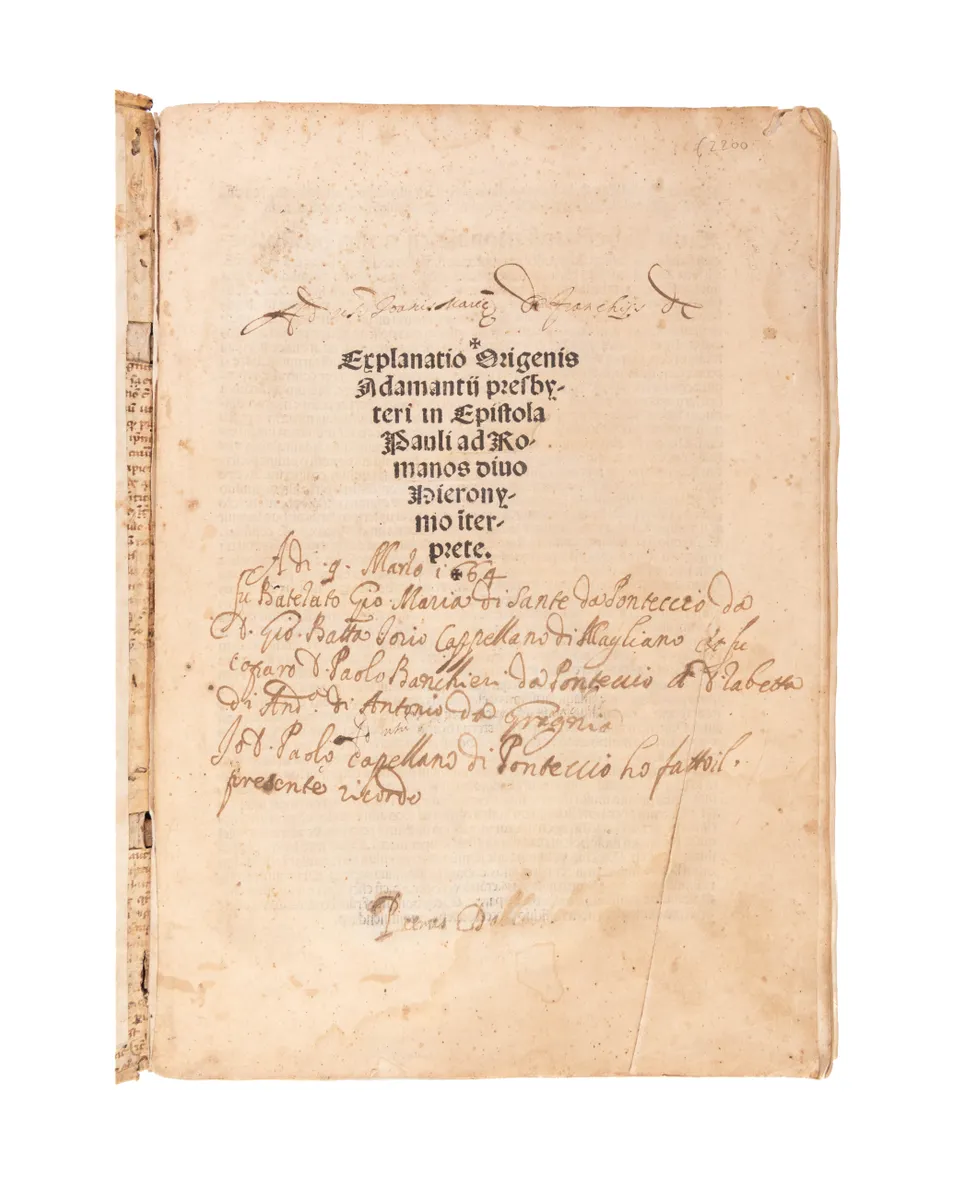 £2200
Ad usū Joannis Marię de Franchis de
Explanatio Origenis
Adamantij presby-
teri in Epistola
Pauli ad Ro-
manos diuo
Hierony-
mo īter-
prete.
Adi .9. Marzo 1664
fu Batelato Gio. Maria di Sante da Ponteccio da
D. Gio. Batta Cappellano di Magliano et fu
D. Paolo Banchieri da Ponteccio
di And.ᵃ di Antonio da Gragnia
Io D. Paolo capellano di Ponteccio ho fatto il.
presente ricordo